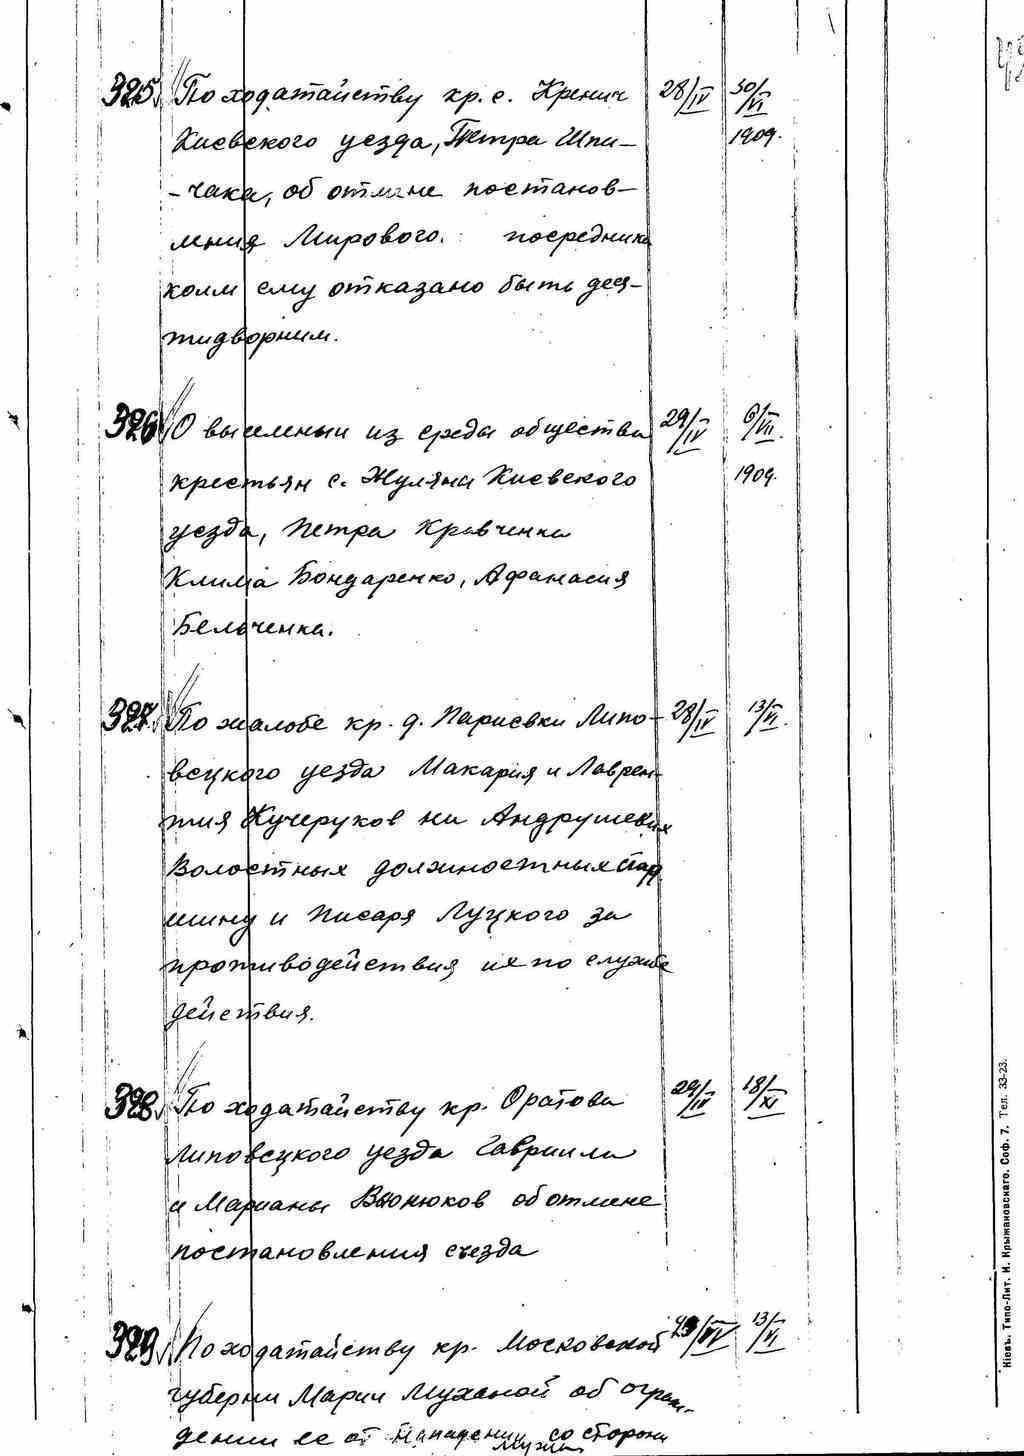 325 По ходатайству кр. с. Кренич 28/IV 30/VI
Киевского уезда, Петра Шпи- 1909.
-чака, об отмене постанов-
ления Мирового посредника
коим ему отказано быть деся-
тидворним.
326 О выселеныи из среды общества 29/IV 6/VII.
крестьян с. Жуляна Киевского 1909.
уезда, Петра Кравченка
Клима Бондаренко, Афанасия
Бельченка.
327 По жалобе кр. д. Париевки Липо- 28/IV 13/VI.
вецкого уезда Макария и Лаврен-
тия Кучеруков на Андрушевких
Волостных должностных
шину и Писаря Луцкого за
противодействия их по службе
действия.
328 По ходатайству кр. Оратова 29/IV 18/XI
Липовецкого уезда Гавриила
и Марианы Вьюнюков об отмене
постановления съезда
329 По ходатайству кр. Московской 13/VI
губерни Марии Мухиной об ограж-
дении ее от нападении со стороны
мужа
Кіевъ. Типо-Лит. И. Крыжановскаго. Соф. 7. Тел. 33-23.